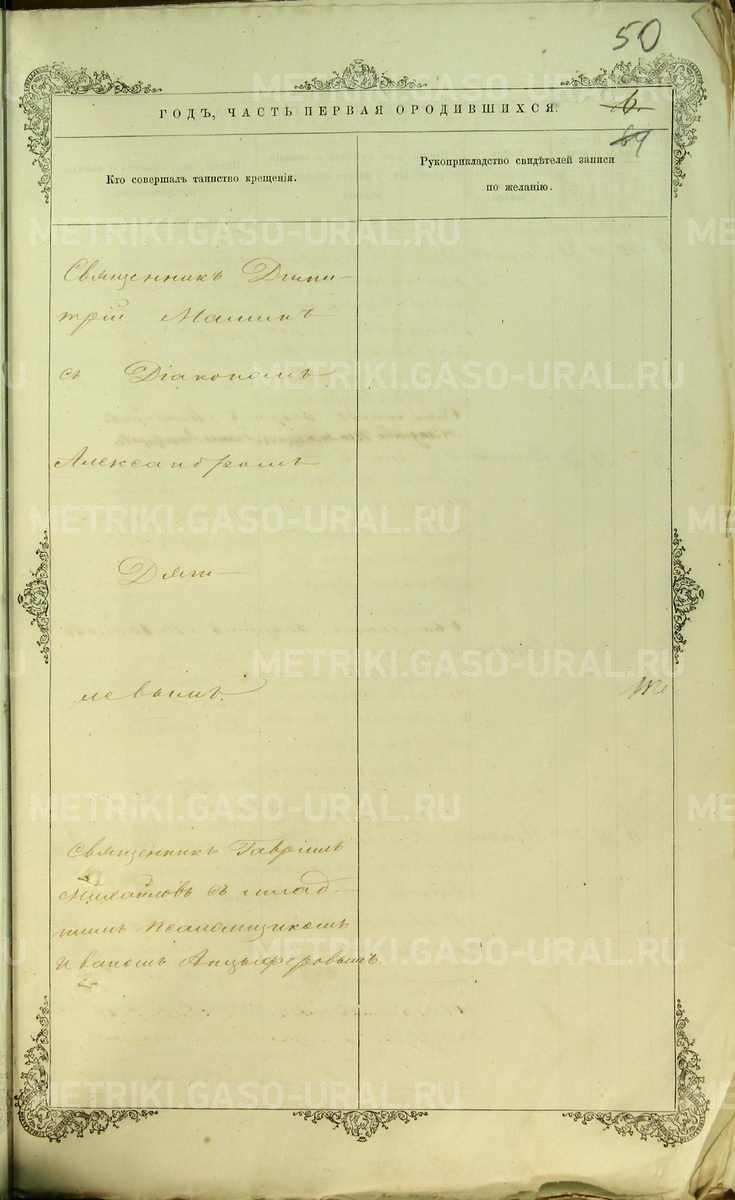 50
ГОДЪ, ЧАСТЬ ПЕРВАЯ ОРОДИВШИХСЯ.
6
Кто совершалъ таинство крещенія.
Рукоприкладство свидѣтелей записи
по желанію.
Священникъ Дими-
трій Маминъ
съ Діакономъ
Александромъ
Дяги-
левымъ.
Священникъ Гавріилъ
Михайловъ съ млад-
шимъ псаломщикомъ
Иваномъ Анцыферовымъ.
METRIKI.GASO-URAL.RU